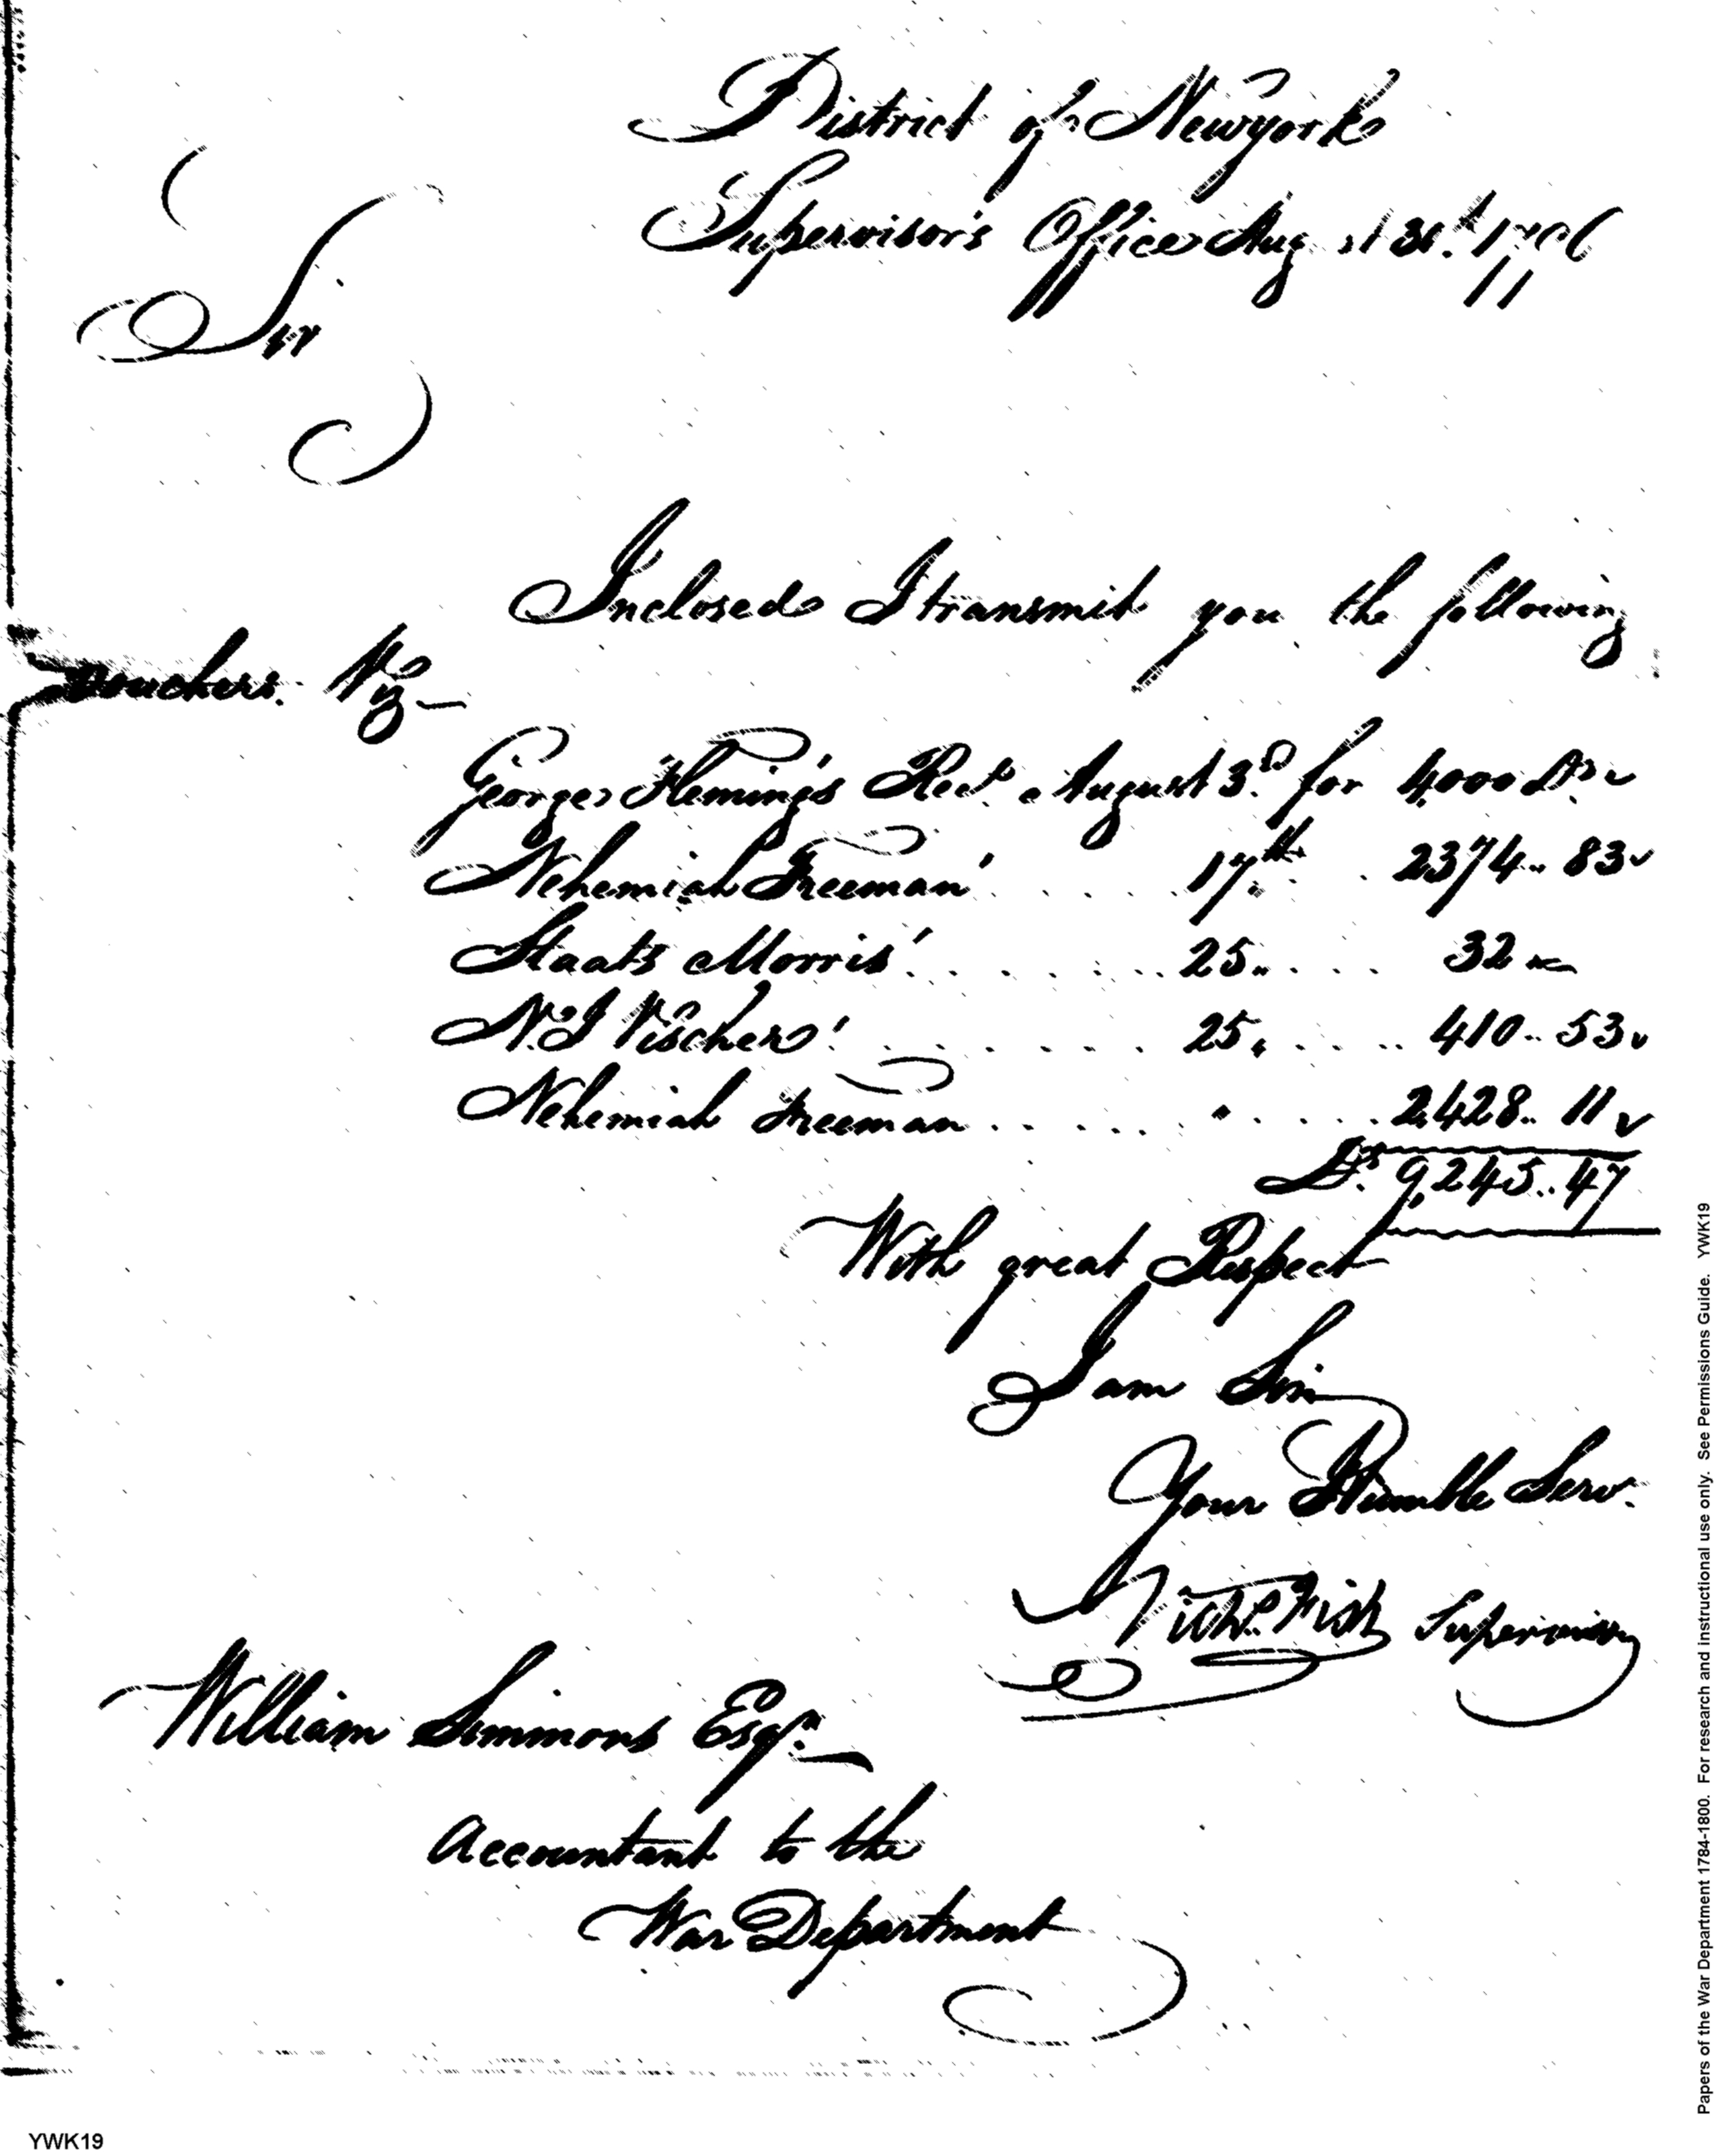 District of Newyork
Supervisor's Office August 31st 1796
Sir
Inclosed I transmit you the following
Vouchers. Viz—
George Fleming's Rect August 3d for 4000 Ds.
Nehemiah Freeman' . . . . . 17th . . 2374.. 83
Staats Morris' . . . . . . . 25.. . . . 32
N. I Vischer' . . . . . . . 25. . . . . 410.. 53
Nehemiah Freeman . . . . . " . . . . . 2428.. 11
Ds. 9245.. 47
With great Respect
I am Sir
Your Humble Serv.
Nichs. Fish Supervisor
William Simmons Esqr.
Accountant to the
War Department
Papers of the War Department 1784-1800. For research and instructional use only. See Permissions Guide. YWK19
YWK19